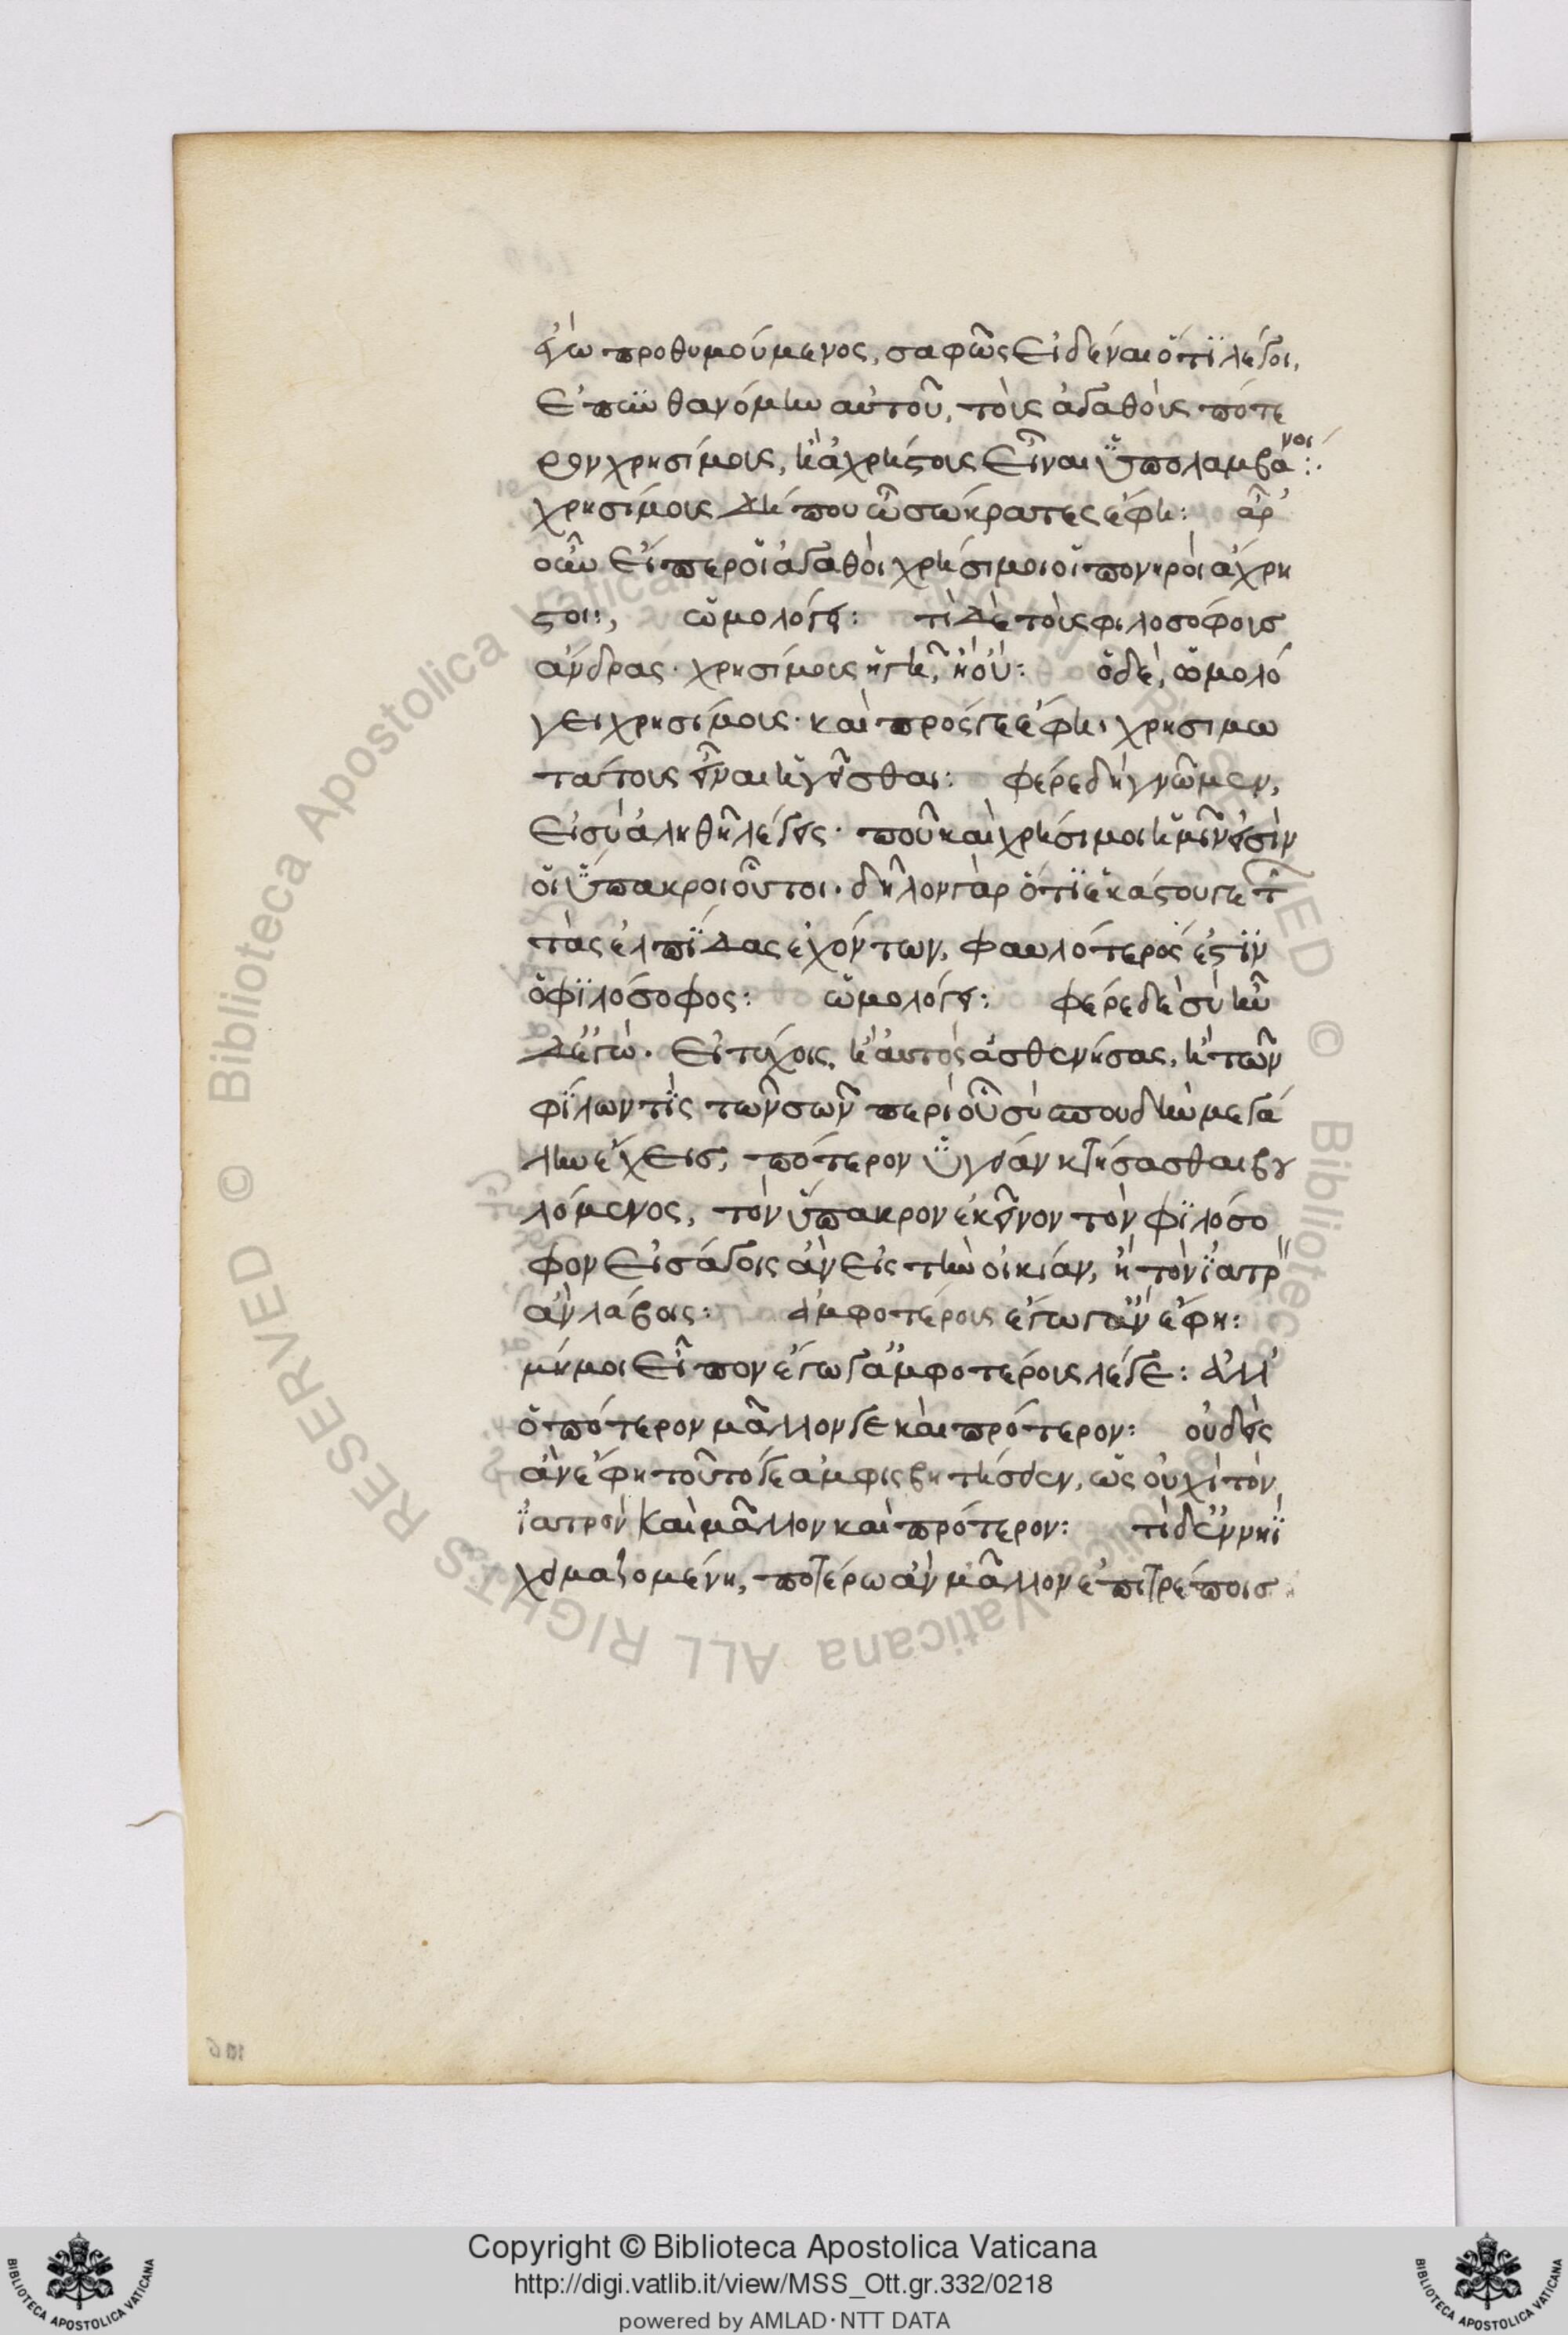 ἐγὼ προθυμούμενος, σαφῶς εἰδέναι ὅ τι λέγοι,
ἐπυνθανόμην αὐτοῦ, τοὺς ἀγαθοὺς πότε
ρον χρησίμους, ἢ ἀχρήστους εἶναι ὑπολαμβάνοι:
χρησίμους δήπου ὦ σώκρατες ἔφη: ἆρ'
οὖν εἴπερ οἱ ἀγαθοὶ χρήσιμοι οἱ πονηροὶ ἄχρη
στοι:, ὡμολόγει: τί δὲ τοὺς φιλοσόφους
ἄνδρας· χρησίμους ἡγῆ, ἢ οὔ: ὁ δὲ, ὡμολό
γει χρησίμους· καὶ πρός γε ἔφη, χρησιμω
τάτους εἶναι ἡγεῖσθαι: φέρε δὴ γνῶμεν,
εἰ σὺ ἀληθῆ λέγεις· ποῦ καὶ χρήσιμοι ἡμῖν εἰσὶν
οἱ ὕπακροι οὗτοι· δῆλον γὰρ ὅτι ἑκάστου γε τ
τὰς ἐλπίδας ἐχόντων, φαυλότερός ἐστιν
ὁ φιλόσοφος: ὡμολόγει: φέρε δὴ σὺ ἦν
δ' ἐγὼ. εἰ τύχοις, ἢ αὐτὸς ἀσθενήσας, ἢ τῶν
φίλων τὶς τῶν σῶν περὶ οὗ σὺ σπουδὴν μεγά
λην ἔχεις, πότερον ὑγείαν κτήσασθαι βου
λόμενος, τὸν ὕπακρον ἐκεῖνον τὸν φιλόσο
φον εἰσάγοις ἂν εἰς τὴν οἰκίαν, ἢ τὸν ἰατρ
ἂν λάβοις: ἀμφοτέρους ἔγωγ' ἂν ἔφη:
μή μοι εἶπον ἐγὼ γ' ἀμφοτέρους λέγε: ἀλλ'
ὁπότερον μᾶλλόν γε καὶ πρότερον: οὐδεὶς
ἂν ἔφη τοῦτό γε ἀμφισβητήσειεν, ὡς οὐχὶ τὸν
ἰατρὸν καὶ μᾶλλον καὶ πρότερον: τί δ' ἐν νηῒ
χειμαζομένη, ποτέρω ἂν μᾶλλον ἐπιτρέποις
106
Copyright © Biblioteca Apostolica Vaticana
http://digi.vatlib.it/view/MSS_Ott.gr.332/0218
powered by AMLAD·NTT DATA
BIBLIOTECA APOSTOLICA VATICANA
BIBLIOTECA APOSTOLICA VATICANA
© Biblioteca Apostolica Vaticana ALL RIGHTS RESERVED